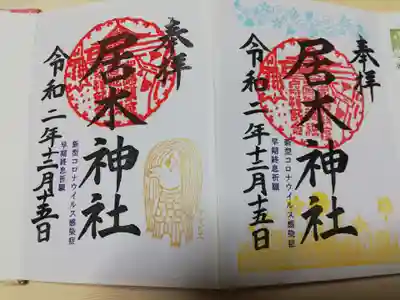 奉拝
居木神社
新型コロナウイルス感染症
早期終息祈願
令和二年十二月十五日
奉拝
居木神社
新型コロナウイルス感染症
早期終息祈願
令和二年十二月十五日